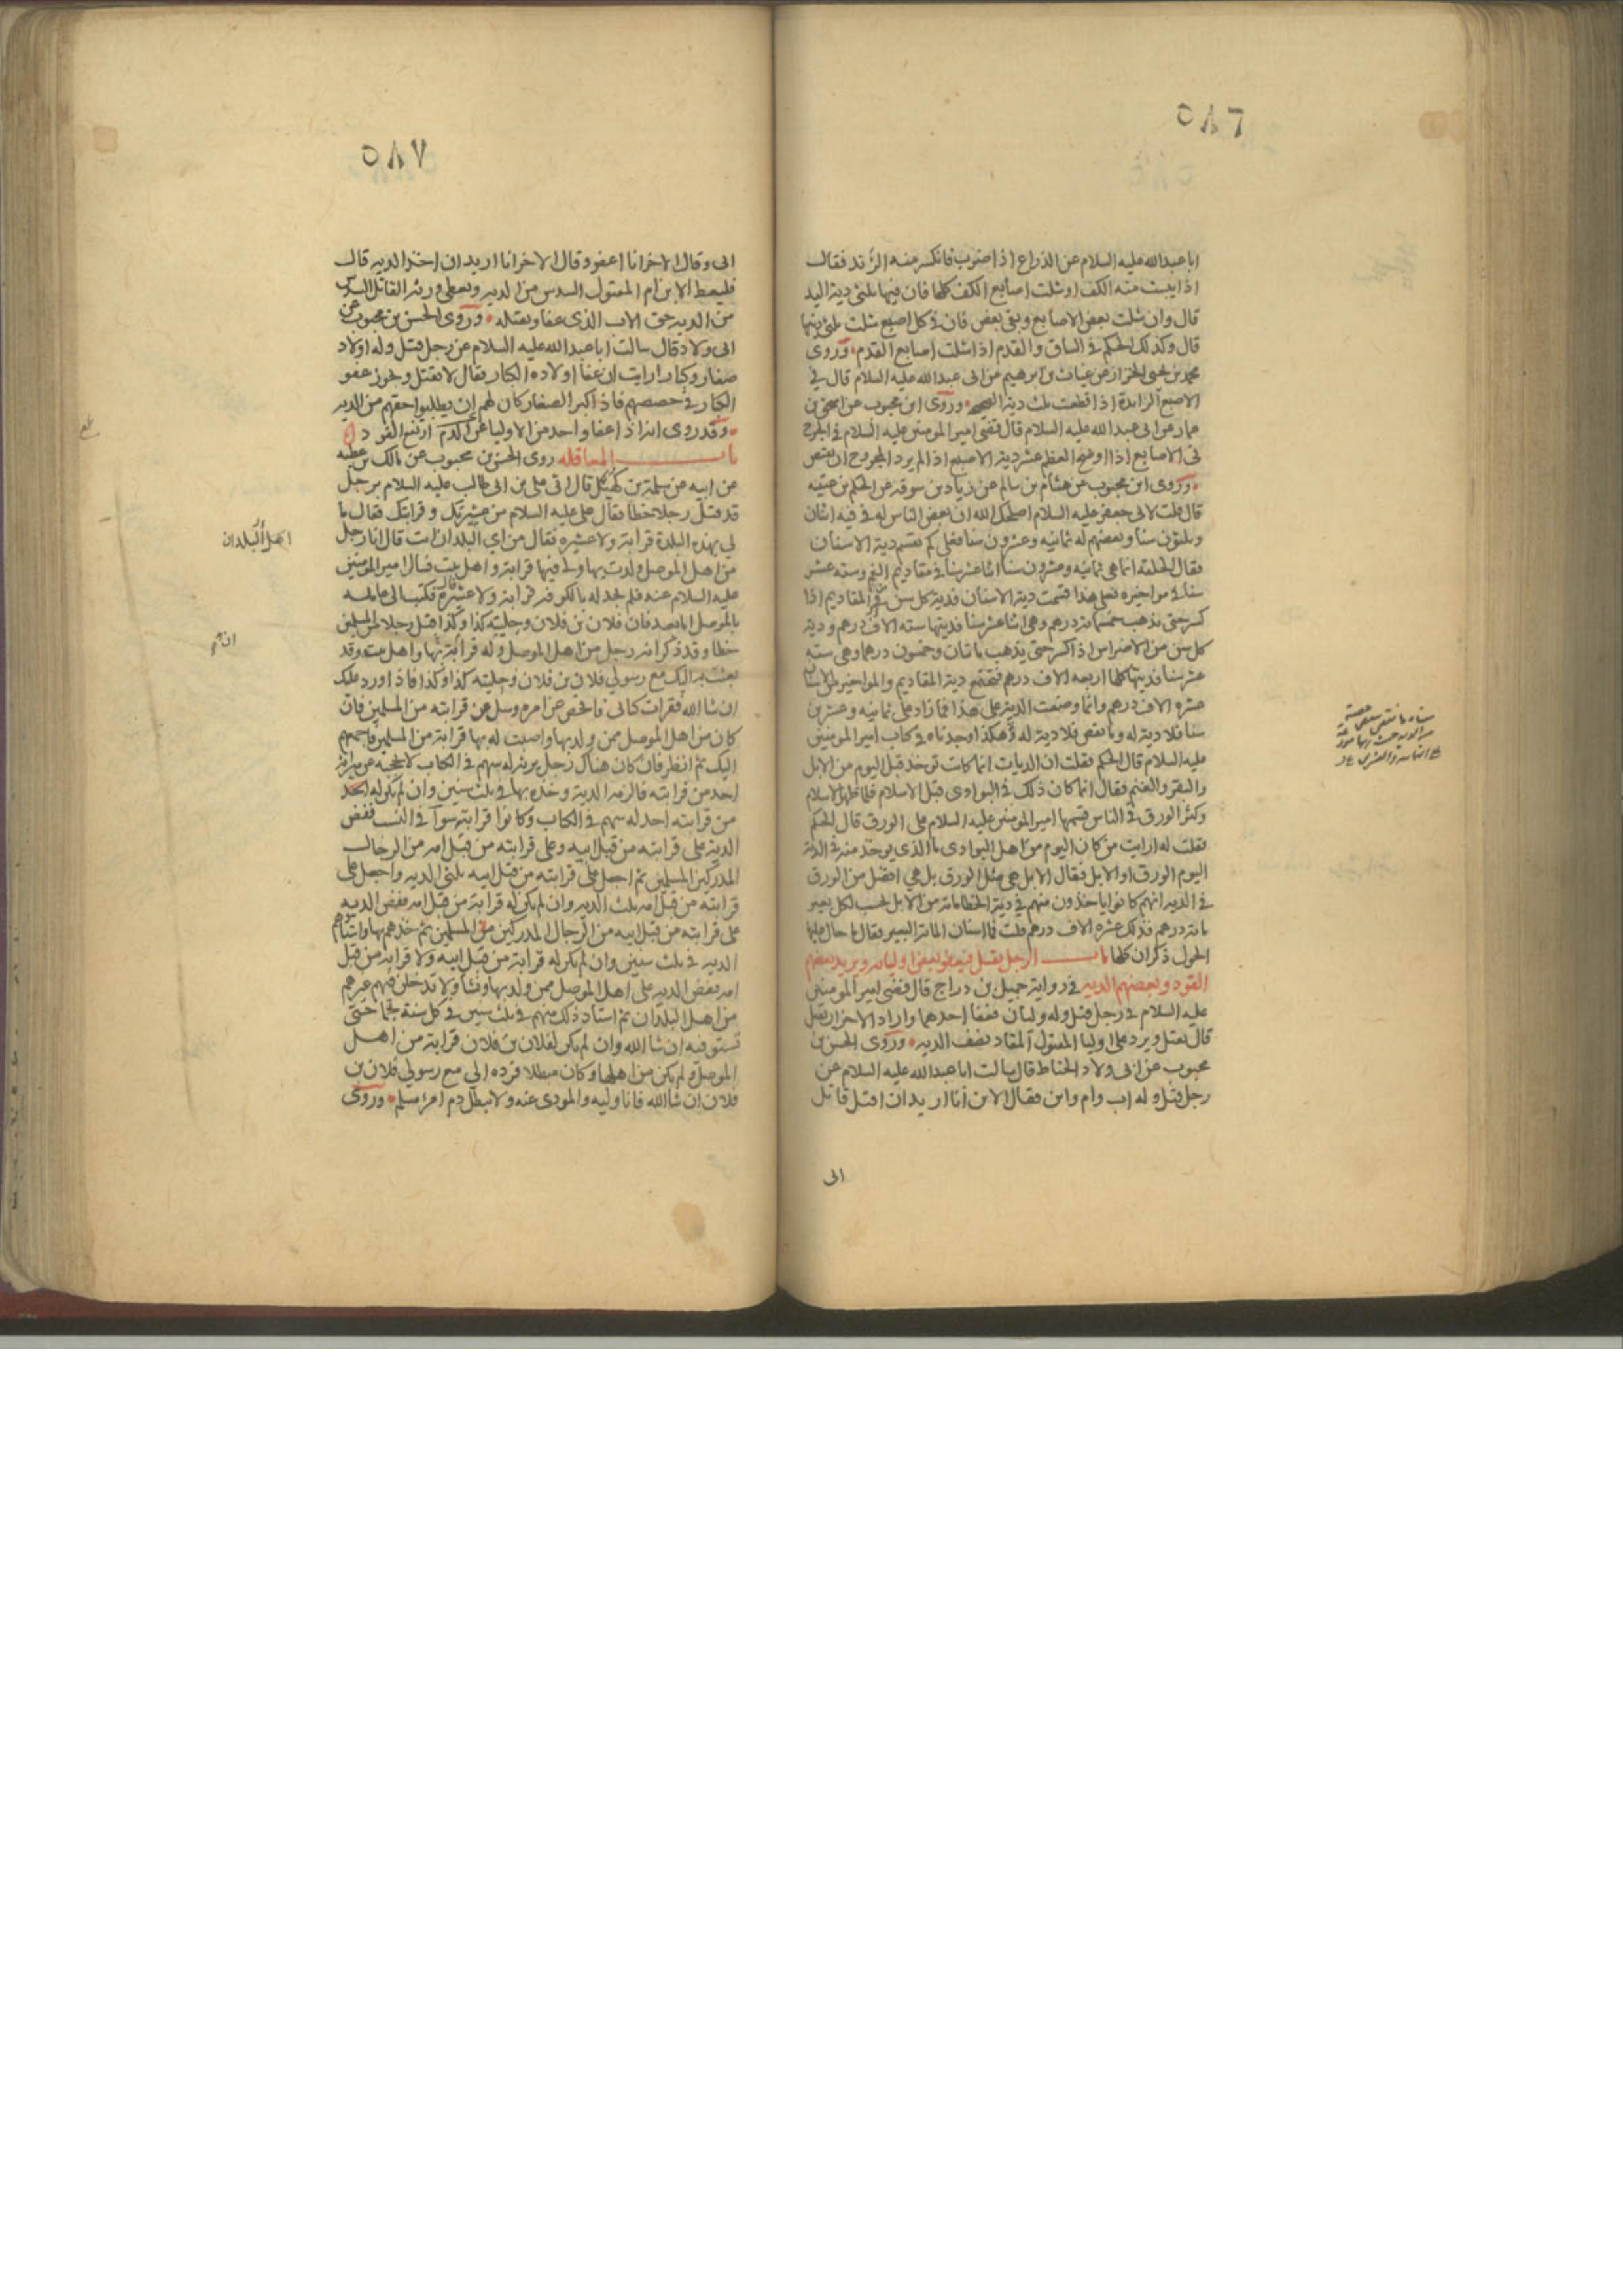 ٥٨٦
ابا عبد الله عليه السلام عن الذراع اذا ضرب فانكسر منه الزند فقال
اذا يبست منه الكف او شلت اصابع الكف كلها فان فيها ثلثي دية اليد
قال وان شلت بعض الاصابع وبقي بعض فان في كل اصبع شلت ثلثي ديتها
قال وكذلك الحكم في الساق والقدم اذا شلت اصابع القدم وروى
محمد بن يحيى الخزاز عن غياث بن ابرهيم عن ابي عبد الله عليه السلام قال في
الاصبع الزايدة اذا قطعت ثلث دية الصحيحه وروى ابن محبوب عن اسحق بن
عمار عن ابي عبد الله عليه السلام قال قضى امير المومنين عليه السلام في الجرح
في الاصابع اذا اوضح العظم عشر دية الاصبع اذا لم يرد المجروح ان يقتص
وروى ابن محبوب عن هشام بن سالم عن زياد بن سوقه عن الحكم بن عتيبه
قال قلت لابي جعفر عليه السلام اصلحك الله ان بعض الناس له في فيه اثنان
وثلثون سنا وبعضهم له ثمانيه وعشرون سنا فعلى كم تقسم دية الاسنان
فقال الخلقه انما هي ثمانيه وعشرون سنا اثنا عشر سنا في مقاديم الفم وسته عشر
سنا في مواخيره فعلى هذا قسمت دية الاسنان فدية كل سن من المقاديم اذا
كسر حتى يذهب خمسمائة درهم وهي اثنا عشر سنا فديتها سته الاف درهم ودية
كل سن من الاضراس اذا كسر حتى يذهب مائتان وخمسون درهما وهي سته
عشر سنا فديتها كلها اربعه الاف درهم فجميع دية المقاديم والمواخير من الاسنان
عشره الاف درهم وانما وضعت الدية على هذا فما زاد على ثمانيه وعشرين
سنا فلا دية له وما نقص فلا دية له وهكذا وجدناه في كتاب امير المومنين
عليه السلام قال الحكم فقلت ان الديات انما كانت توخذ قبل اليوم من الابل
والبقر والغنم فقال انما كان ذلك في البوادى قبل الاسلام فلما ظهر الاسلام
وكثر الورق في الناس قسمها امير المومنين عليه السلام على الورق قال الحكم
فقلت له ارايت من كان اليوم من اهل البوادى ما الذي يوخذ منه في الدية
اليوم الورق او الابل فقال الابل هي مثل الورق بل هي افضل من الورق
في الدية انهم كانوا ياخذون منهم في دية الخطا مائة من الابل يحسب لكل بعير
مائة درهم فذلك عشره الاف درهم قلت فما اسنان المائة البعير فقال ما حال عليها
الحول ذكران كلها باب الرجل يقتل فيعفو بعض اوليائه ويريد بعضهم
القود وبعضهم الديه في رواية جميل بن دراج قال قضى امير المومنين
عليه السلام في رجل قتل وله وليان فعفا احدهما واراد الاخر ان يقتل
قال يقتل ويرد على اوليا المقتول المقاد نصف الديه وروى الحسن بن
محبوب عن ابي ولاد الحناط قال سالت ابا عبد الله عليه السلام عن
رجل قتل وله اب وام وابن فقال الابن انا اريد ان اقتل قاتل
ابى
٥٨٧
ابى وقال الاخر انا اعفو وقال الاخر انا اريد ان اخذ الديه قال
فليعط الابن ام المقتول السدس من الديه ويعطى ورثة القاتل السدس
من الديه حق الاب الذى عفا ويقتله وروى الحسن بن محبوب عن
ابى ولاد قال سالت ابا عبد الله عليه السلام عن رجل قتل وله اولاد
صغار وكبار ارايت ان عفا اولاده الكبار فقال لا يقتل ويجوز عفو
الكبار في حصصهم فاذا كبر الصغار كان لهم ان يطلبوا حقهم من الديه
وقد روى انه اذا عفا واحد من الاوليا عن الدم ارتفع القود
باب العاقله روى الحسن بن محبوب عن مالك بن عطيه
عن ابيه عن سلمة بن كهيل قال اتى علي بن ابي طالب عليه السلام برجل
قد قتل رجلا خطا فقال علي عليه السلام من عشيرتك وقرابتك فقال ما
لي بهذه البلدة قرابة ولا عشيره فقال من اي البلدان انت قال انا رجل
من اهل الموصل ولدت بها ولي فيها قرابة واهل بيت فسال امير المومنين
عليه السلام عنه فلم يجد له بالكوفه قرابة ولا عشيرة قال فكتب الى عامله
بالموصل اما بعد فان فلان بن فلان وحليته كذا وكذا قتل رجلا من المسلمين
خطا وقد ذكر انه رجل من اهل الموصل وله قرابة بها واهل بيت وقد
بعثت به اليك مع رسولي فلان بن فلان وحليته كذا وكذا فاذا ورد عليك
ان شا الله فقرات كتابى فافحص عن امره وسل عن قرابته من المسلمين فان
كان من اهل الموصل ممن ولد بها واصبت له بها قرابة من المسلمين فاجمعهم
اليك ثم انظر فان كان هناك رجل يرثه له سهم في الكتاب لا يحجبه عن ميراثه
احد من قرابته فالزمه الدية وخذه بها في ثلث سنين وان لم يكن له احد
من قرابته احد له سهم في الكتاب وكانوا قرابته سوآ في النسب ففض
الدية على قرابته من قبل ابيه وعلى قرابته من قبل امه من الرجال
المدركين المسلمين ثم اجعل على قرابته من قبل ابيه ثلثى الديه واجعل على
قرابته من قبل امه ثلث الديه وان لم يكن له قرابة من قبل امه ففض الديه
على قرابته من قبل ابيه من الرجال المدركين من المسلمين ثم خذهم بها واستاهم
الديه في ثلث سنين وان لم يكن له قرابة من قبل ابيه ولا قرابة من قبل
امه ففض الديه على اهل الموصل ممن ولد بها ونشأ ولا تدخلن فيهم غيرهم
من اهل البلدان ثم استاد ذلك منهم في ثلث سنين في كل سنة نجما حتى
تستوفيه ان شا الله وان لم يكن لفلان بن فلان قرابة من اهل
الموصل ولم يكن من اهلها وكان مبطلا فرده الي مع رسولي فلان بن
فلان ان شا الله فانا وليه والمودى عنه ولا يبطل دم امرء مسلم وروى
اهل البلدان